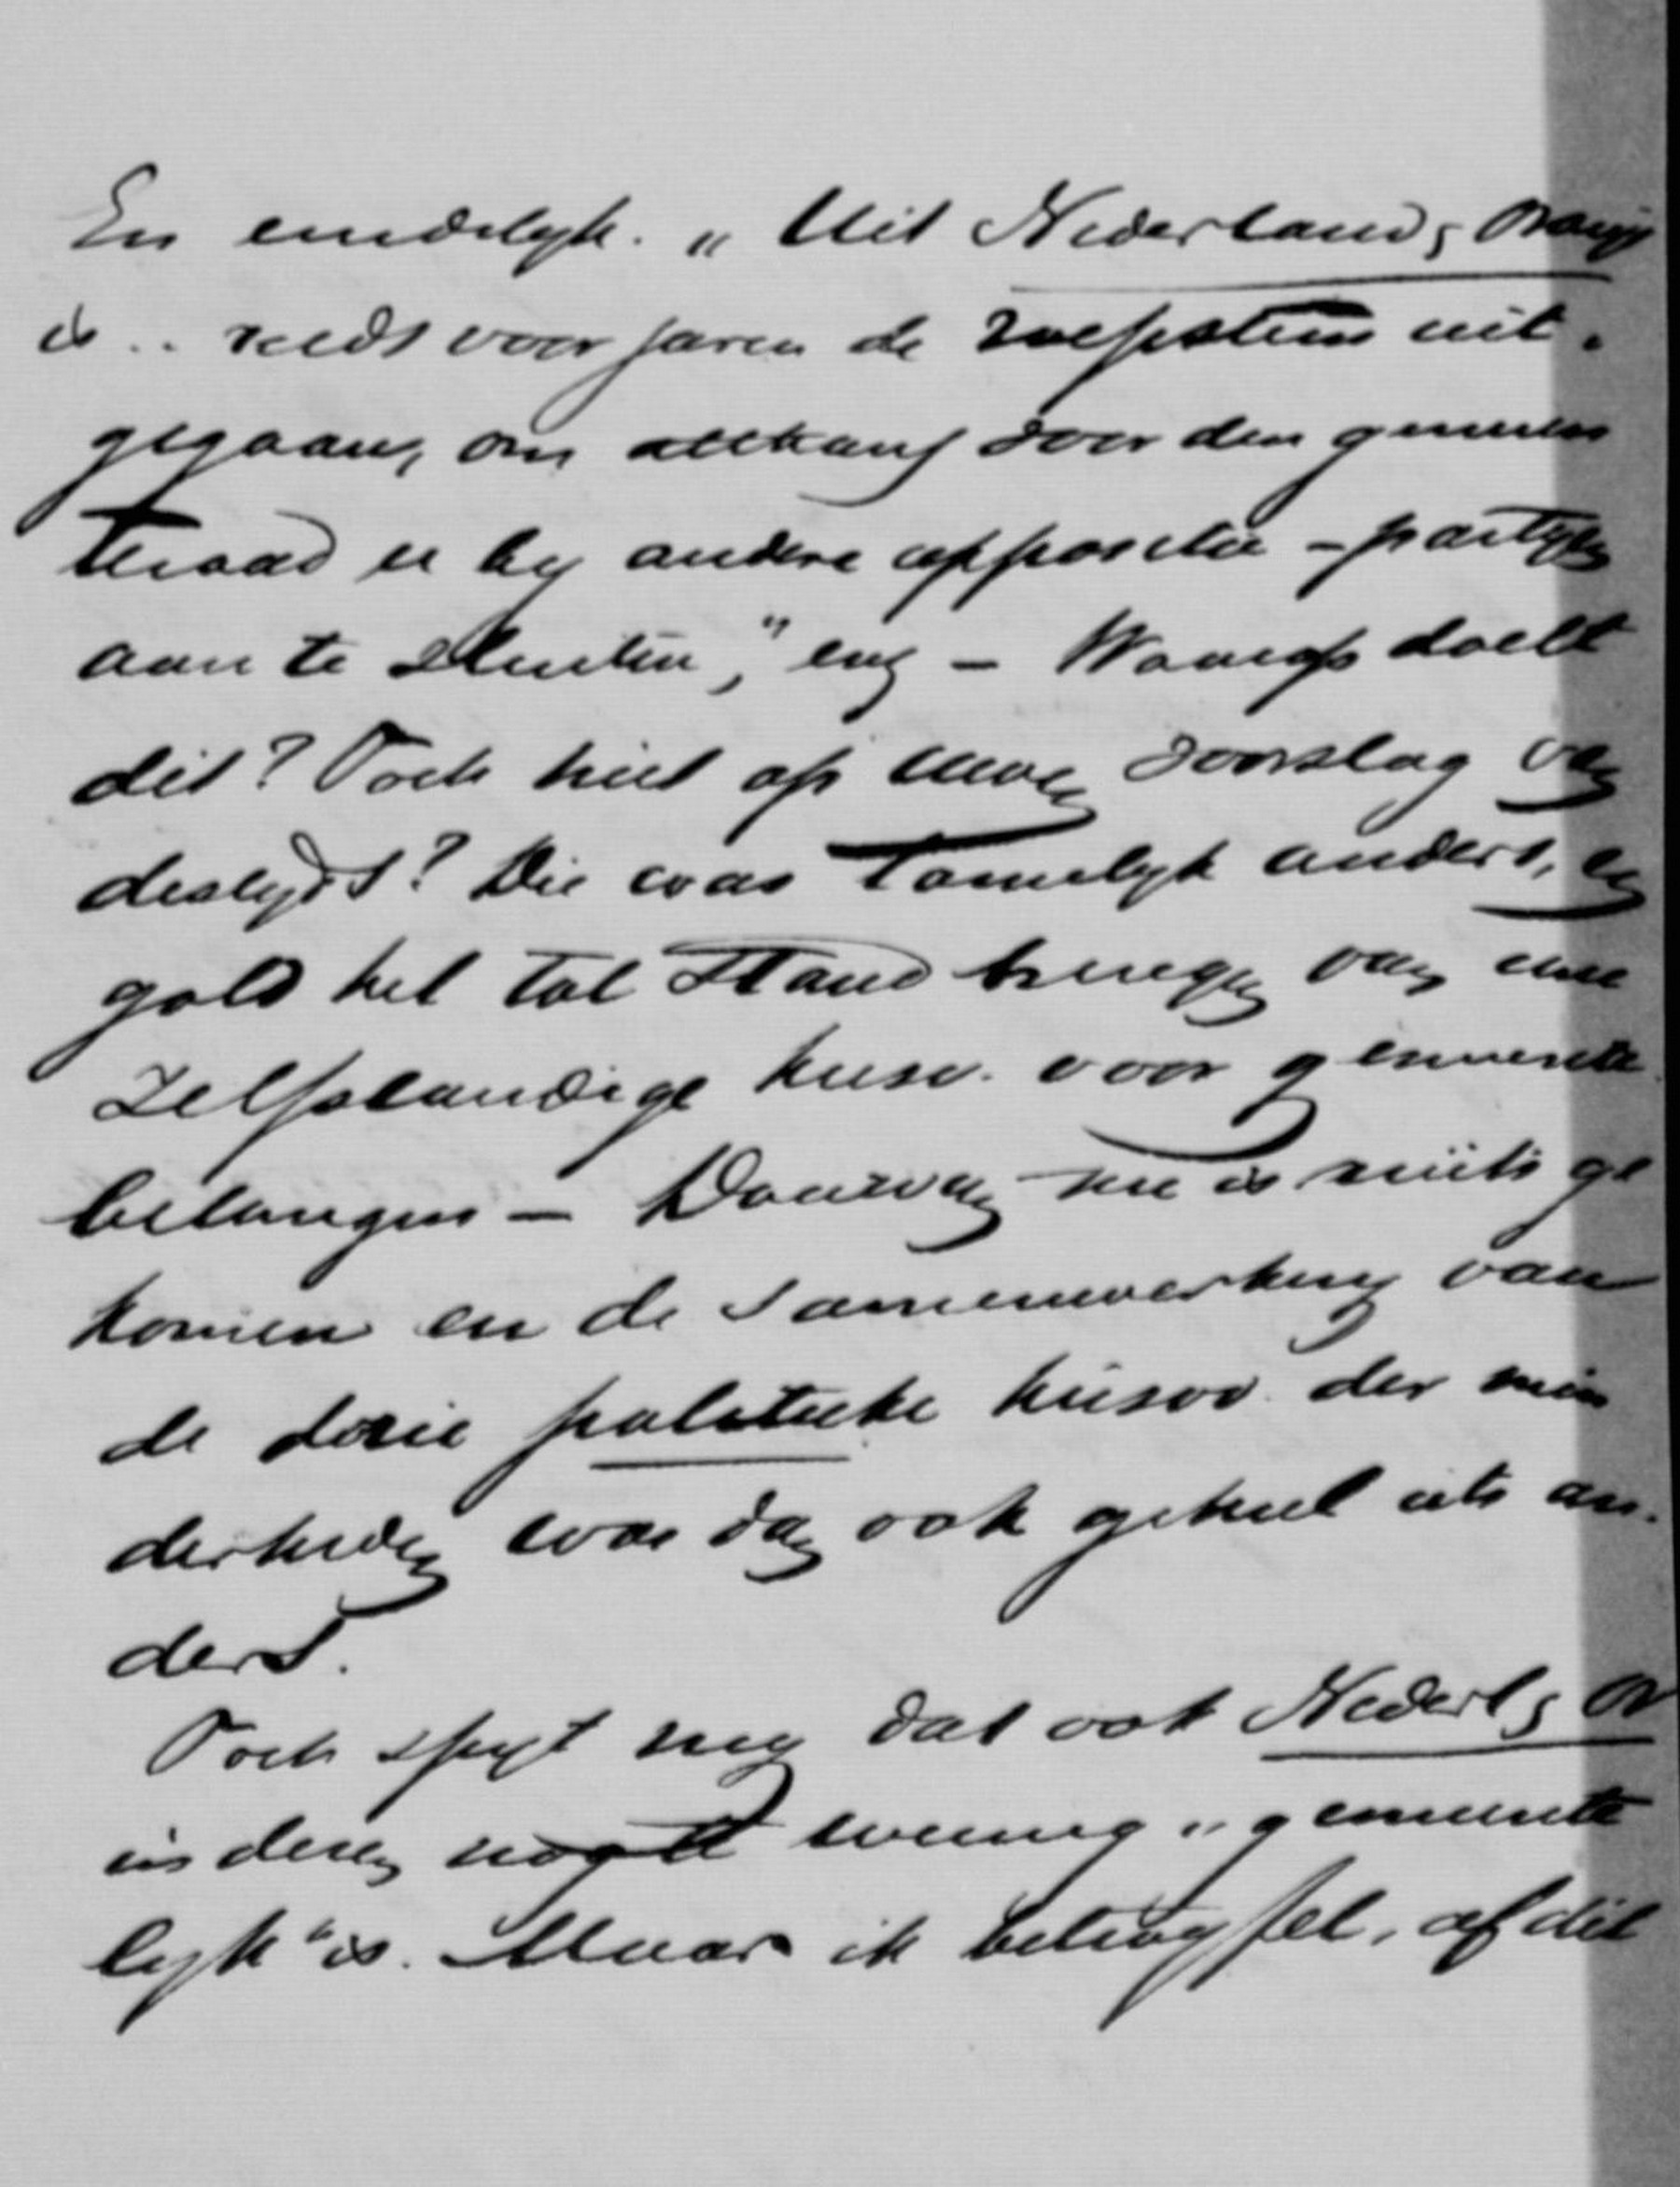 En eindelyk. „Uit Nederland & Oranje
is .. reeds voor jaren de roepstem uit-
gegaan, om althans voor den gemeen
teraad er by andere oppositie-partyen
aan te sluiten," enz - Waarop doelt
dit? Toch niet op uwen voorslag van
destyds? Die was tamelyk anders, en
gold het tot stand brengen van eene
zelfstandige kiesv. voor gemeente
belangen - Daarvan nu is niets ge
komen en de samenwerking van
de drie politieke kiesvv. der min
derheden was dan ook geheel iets an-
ders.
Toch spyt my dat ook Nederl & Or
in dezen nogal weinig „gemeente
lyk" is. Maar ik betwyfel, of dit